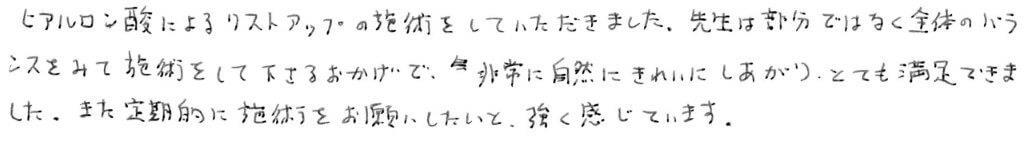 ヒアルロン酸によるリストアップの施術をしていただきました。先生は部分ではなく全体のバラ
ンスをみて施術をして下さるおかげで、非常に自然にきれいにしあがり、とても満足できま
した。また定期的に施術をお願いしたいと、強く感じています。